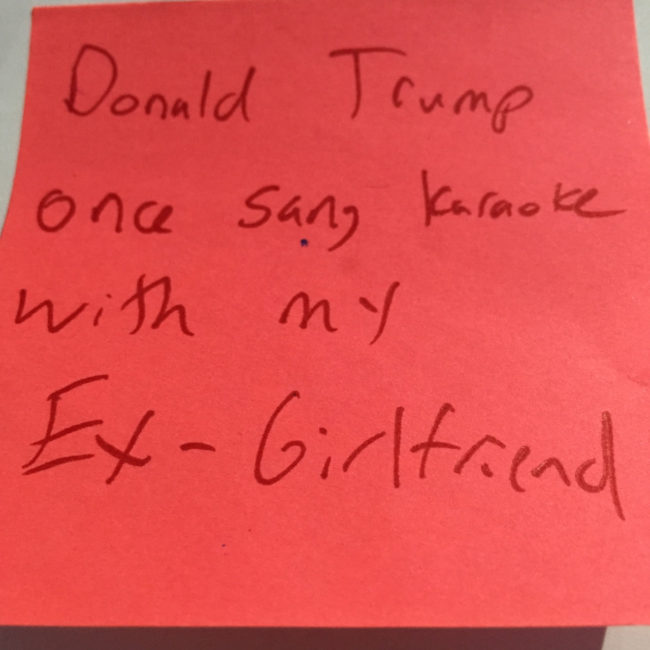 Donald Trump
once sang karaoke
with my
Ex-Girlfriend